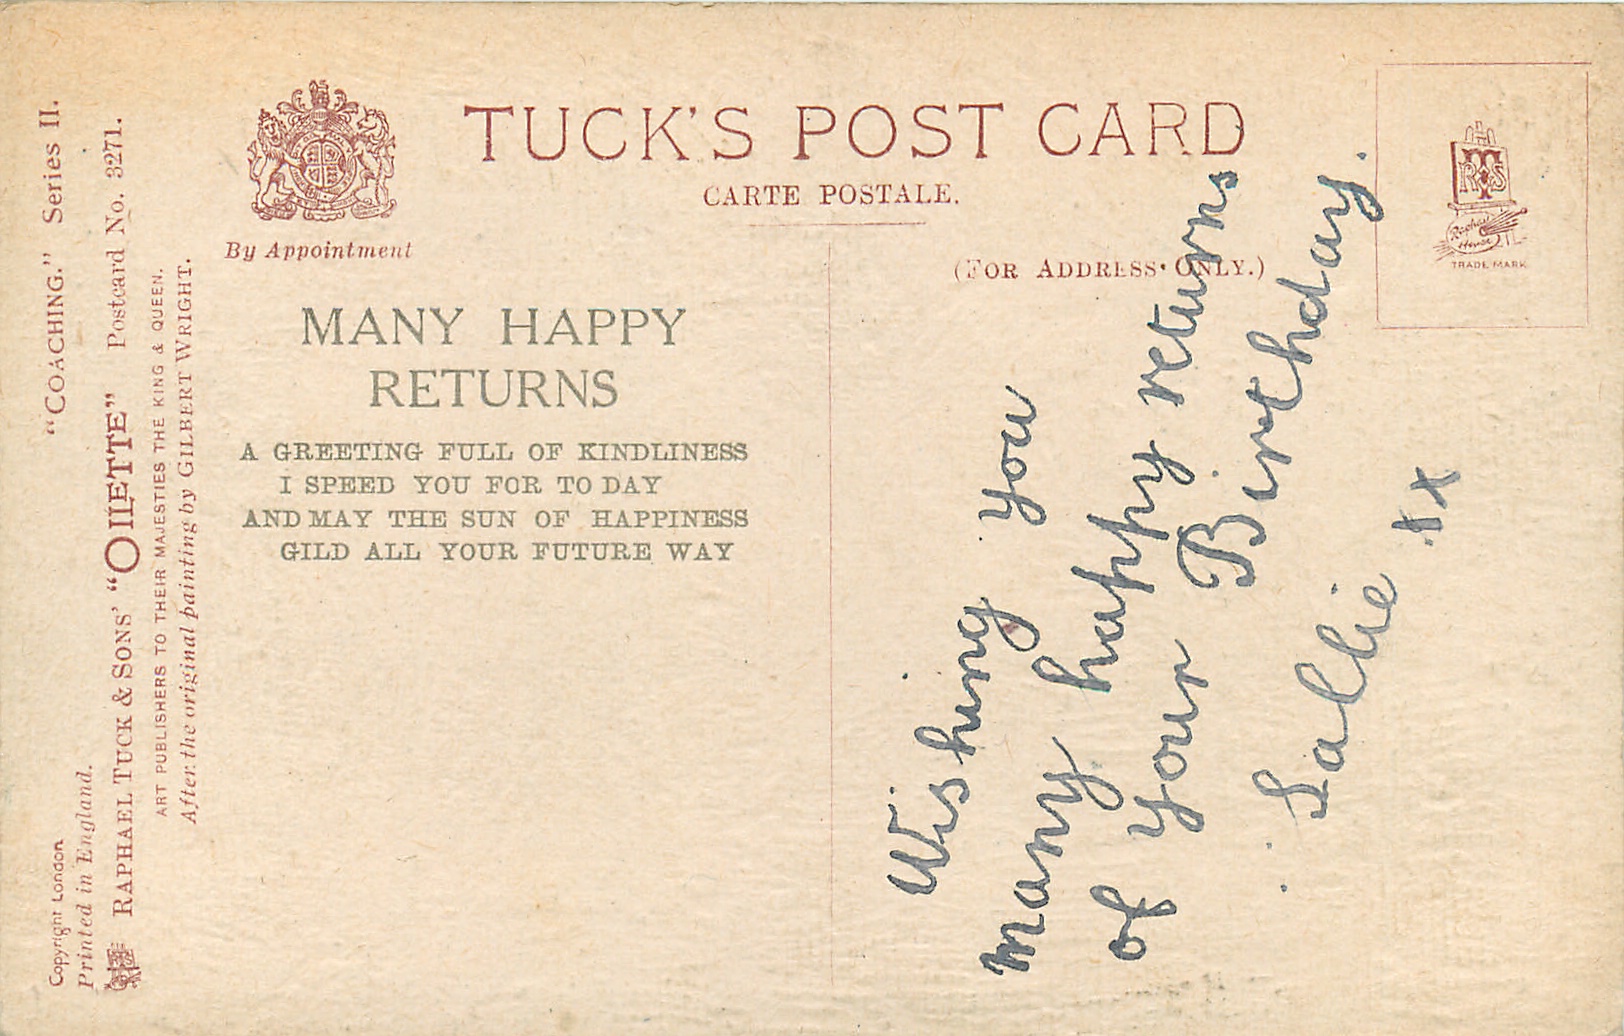 "COACHING." Series II.
Copyright London
Printed in England.
RAPHAEL TUCK & SONS' "OILETTE" Postcard No. 3271.
ART PUBLISHERS TO THEIR MAJESTIES THE KING & QUEEN.
After the original painting by GILBERT WRIGHT.
By Appointment
TUCK'S POST CARD
CARTE POSTALE.
(FOR ADDRESS ONLY.)
RTS
Raphael
House
TRADE MARK
MANY HAPPY
RETURNS
A GREETING FULL OF KINDLINESS
I SPEED YOU FOR TO DAY
AND MAY THE SUN OF HAPPINESS
GILD ALL YOUR FUTURE WAY
Wishing you
many happy returns
of your Birthday.
Sallie xx